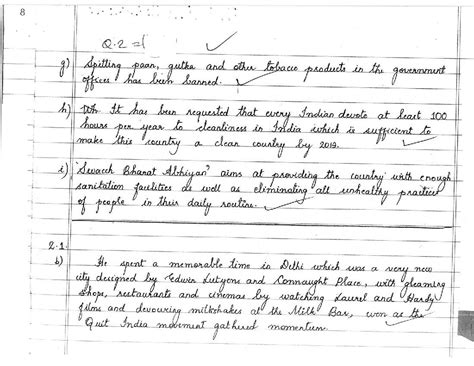 8
Q.2 =1
g) Spitting paan, gutka and other tobacco products in the government
offices has been banned.
h) It has been requested that every Indian devote at least 100
hours per year to cleanliness in India which is sufficient to
make this country a clean country by 2019.
i) 'Swacch Bharat Abhiyan' aims at providing the country with enough
sanitation facilities as well as eliminating all unhealthy practices
of people in their daily routine.
2.1.
b) He spent a memorable time in Delhi which was a very new
city designed by Edwin Lutyens and Connaught Place, with gleaming
shops, restaurants and cinemas by watching Laurel and Hardy
films and devouring milkshakes at the Milk Bar, even as the
Quit India movement gathered momentum.